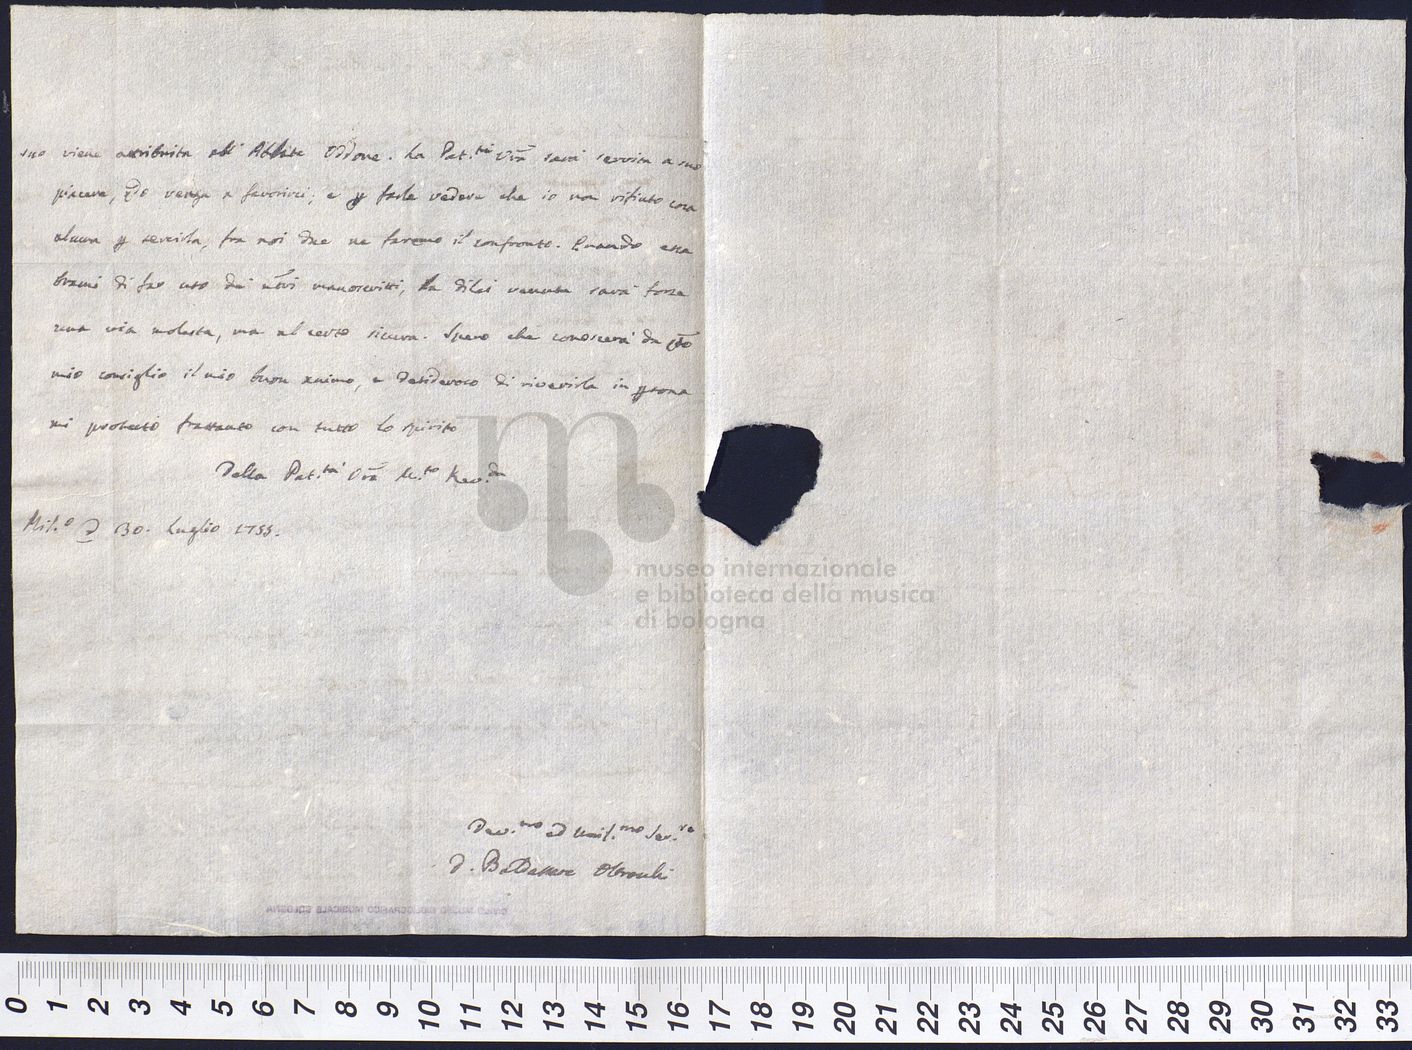 suo viene attribuita all' Abbate Oddone. La Pat.tà Vrã sarà servita a suo
piacere, qdo venga a favorirci; e p farle vedere che io non rifiuto cosa
alcuna p servirla, fra noi due ne faremo il confronto. Quando essa
brami di far uso dei nr̃i manoscritti, la di lei venuta sarà forse
una via molesta, ma al certo sicura. Spero che conoscerà da qto
mio consiglio il mio buon animo, e desideroso di riverirla in psona
mi protesto frattanto con tutto lo spirito
Della Pat.tà Vrã M.to Rev.da
Mil.o 30. Luglio 1755.
Dev.mo ed Umil.mo Ser.re
D. Baldassare
museo internazionale
e biblioteca della musica
di bologna
CIVICO MUSEO BIBLIOGRAFICO MUSICALE BOLOGNA
0 1 2 3 4 5 6 7 8 9 10 11 12 13 14 15 16 17 18 19 20 21 22 23 24 25 26 27 28 29 30 31 32 33